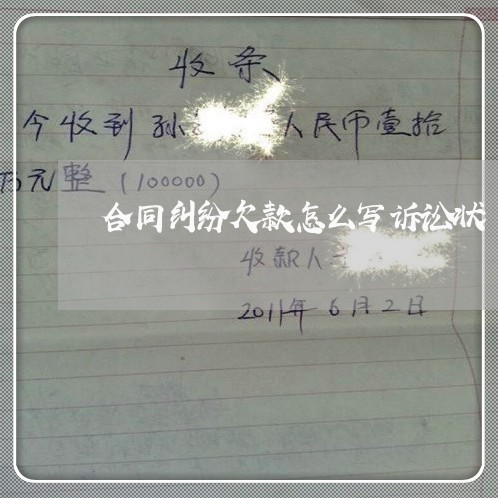 收条
今收到孙 人民币壹拾
万元整（100000）
合同纠纷欠款怎么写诉讼状
收款人
2011年6月2日